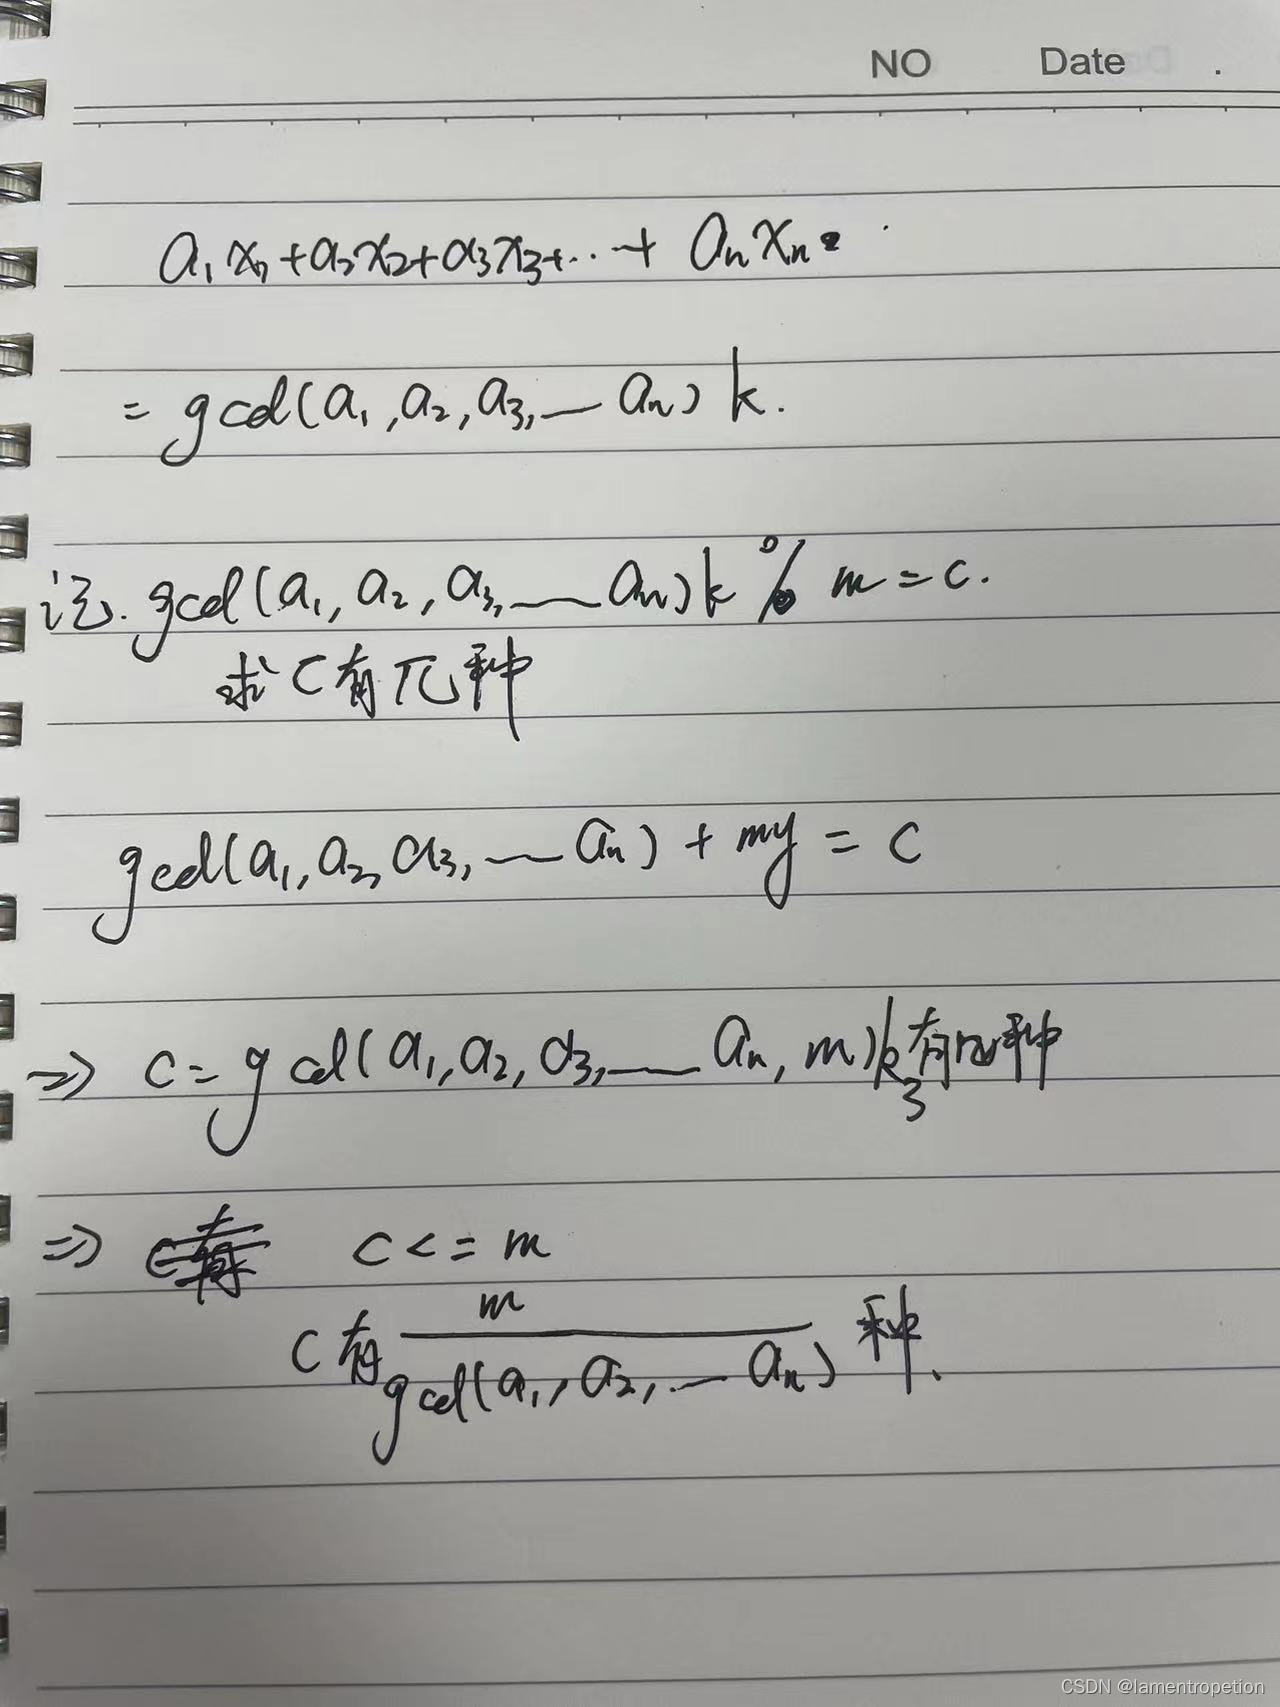 NO Date .
a₁x₁+a₂x₂+a₃x₃+...+ aₙxₙ
= gcd(a₁,a₂,a₃,— aₙ)k.
记. gcd(a₁,a₂,a₃,— aₙ)k % m=c.
求C有几种
gcd(a₁,a₂,a₃,— aₙ)+my=c
=> c=gcd(a₁,a₂,a₃,— aₙ,m)k₃有几种
=> c<=m
m
C有 种.
gcd(a₁,a₂,...aₙ)
CSDN @lamentropetion